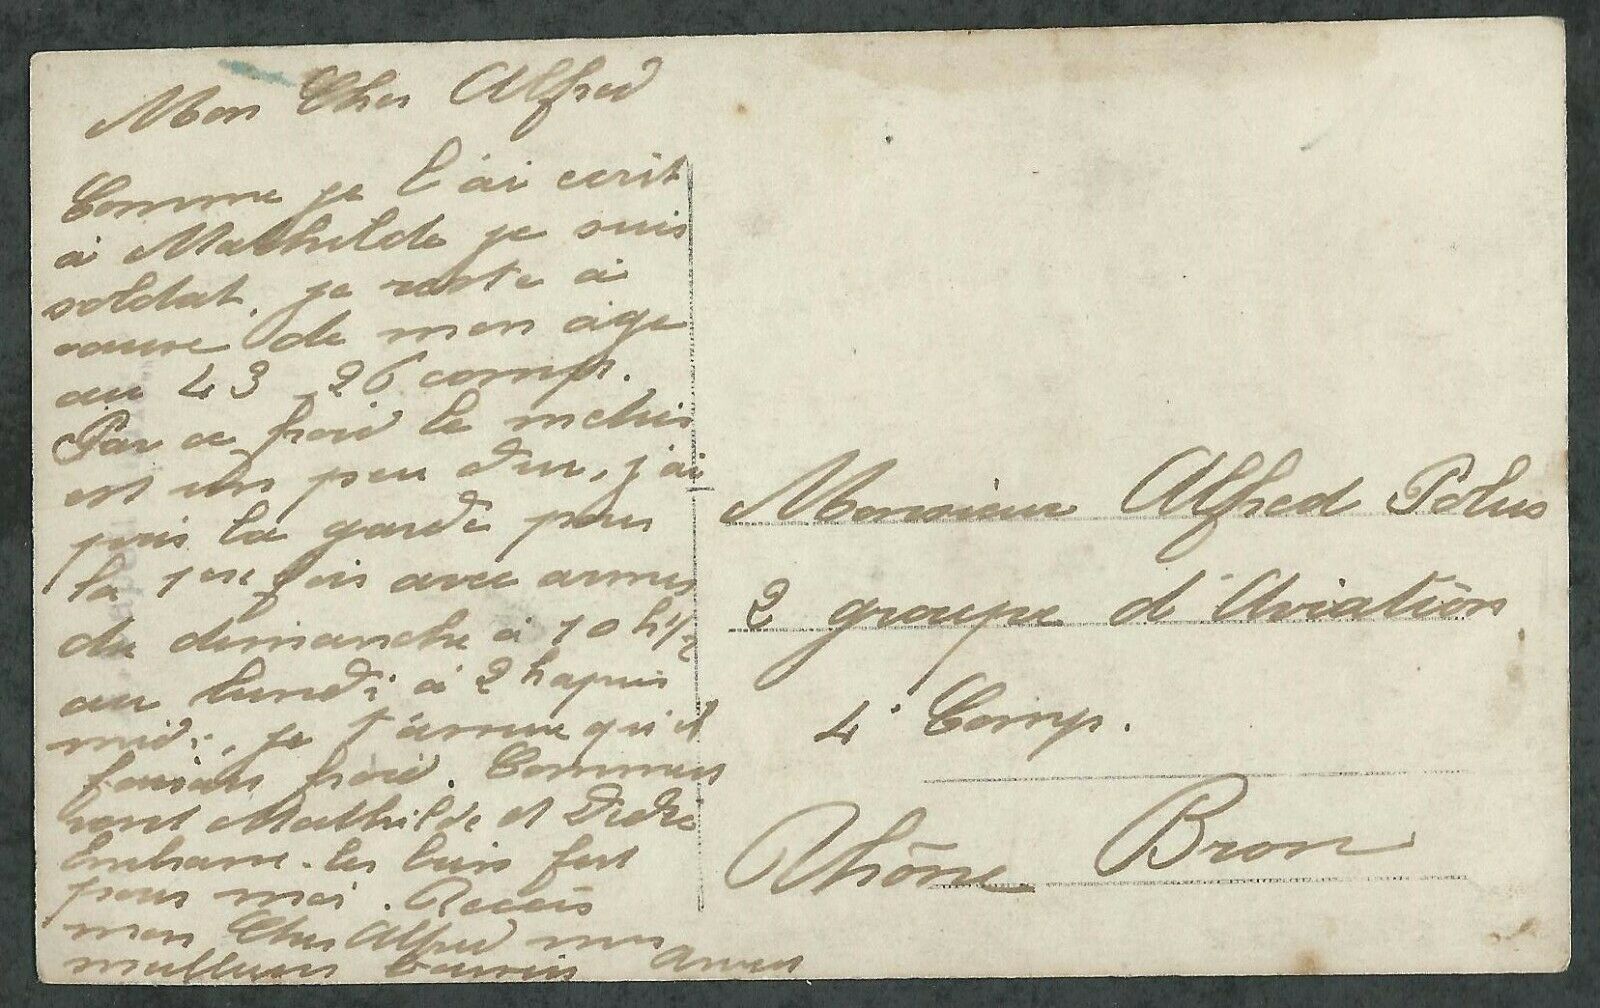 Mon Cher Alfred
Comme je l'ai ecrit
à Mathilde je suis
soldat, je reste à
cause de mon age
au 43 26 comp.
Par ce froid le métier
est un peu dur, j'ai
pris la garde pour
la 1ere fois avec armes
du dimanche à 10 h 1/2
au lundi à 2 h apris
midi, je t'assure qu'il
faisais froid. Comment
vont Mathilde et
Embrasse-les bien fort
pour moi. Reçois
mon Cher Alfred mes
meilleurs baisers
Monsieur Alfred Polus
2 groupe d'Aviation
4e Comp.
Rhône Bron